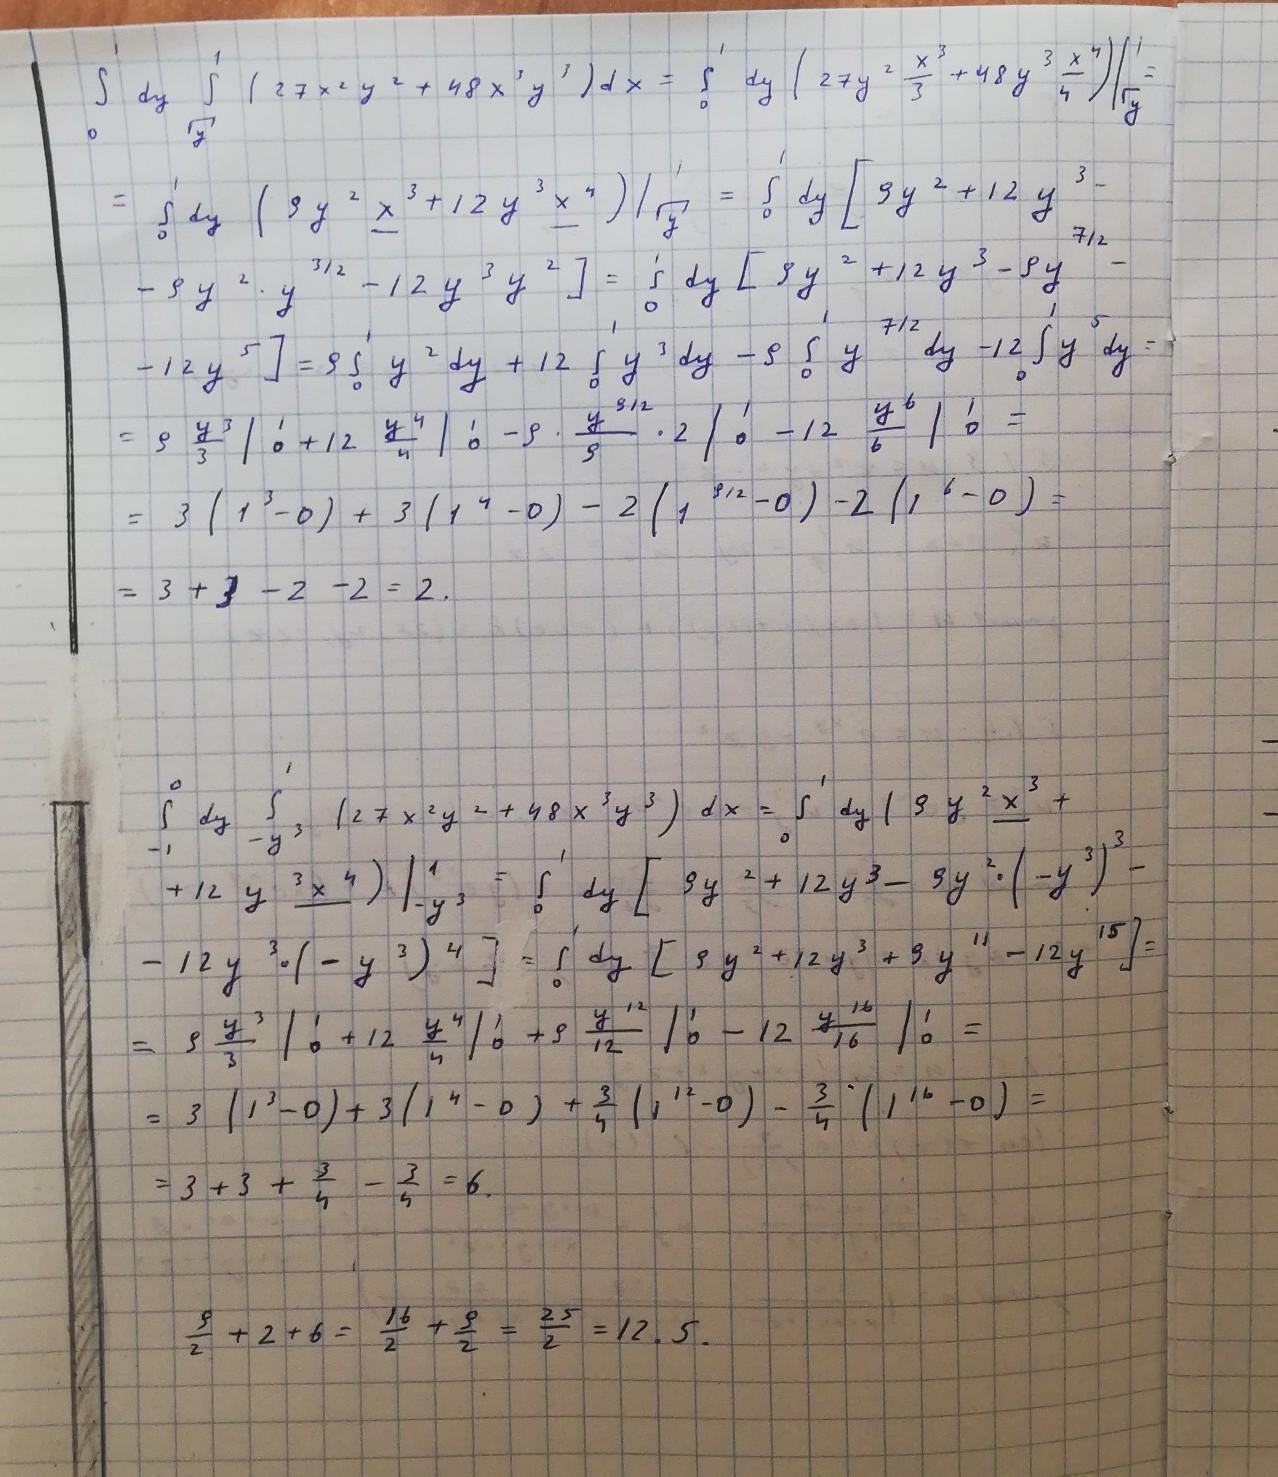 ∫₀¹ dy ∫_{√y}^1 (27x²y² + 48x³y³)dx = ∫₀¹ dy (27y² x³/3 + 48y³ x⁴/4)|_{√y}^1 =
= ∫₀¹ dy (9y² x³ + 12y³ x⁴)|_{√y}^1 = ∫₀¹ dy [9y² + 12y³ -
- 9y² · y^{3/2} - 12y³y²] = ∫₀¹ dy [9y² + 12y³ - 9y^{7/2} -
- 12y⁵] = 9∫₀¹ y²dy + 12∫₀¹ y³dy - 9∫₀¹ y^{7/2}dy - 12∫₀¹ y⁵dy =
= 9 y³/3 |₀¹ + 12 y⁴/4 |₀¹ - 9 · y^{9/2}/9 · 2 |₀¹ - 12 y⁶/6 |₀¹ =
= 3(1³-0) + 3(1⁴-0) - 2(1^{9/2}-0) - 2(1⁶-0) =
= 3 + 3 - 2 - 2 = 2.
∫_{-1}^0 dy ∫_{-y³}^1 (27x²y² + 48x³y³) dx = ∫₀¹ dy (9y² x³ +
+ 12y³x⁴)|_{-y³}^1 = ∫₀¹ dy [9y² + 12y³ - 9y²·(-y³)³ -
- 12y³·(-y³)⁴] = ∫₀¹ dy [9y² + 12y³ + 9y¹¹ - 12y¹⁵] =
= 9 y³/3 |₀¹ + 12 y⁴/4 |₀¹ + 9 y¹²/12 |₀¹ - 12 y¹⁶/16 |₀¹ =
= 3(1³-0) + 3(1⁴-0) + 3/4 (1¹²-0) - 3/4 · (1¹⁶-0) =
= 3 + 3 + 3/4 - 3/4 = 6.
9/2 + 2 + 6 = 16/2 + 9/2 = 25/2 = 12.5.